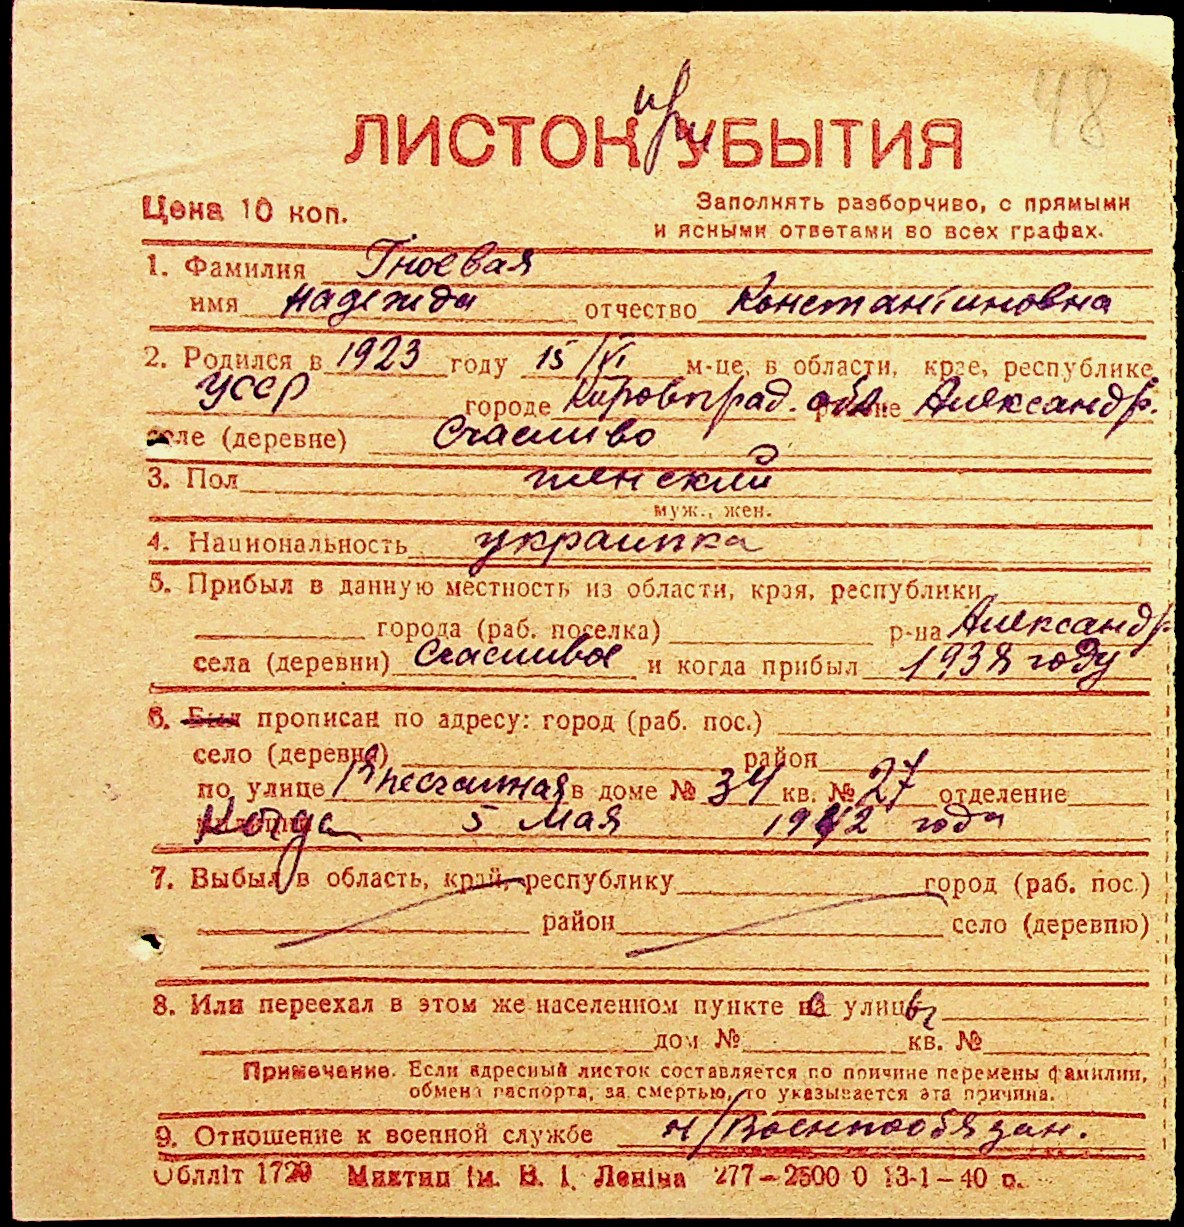 48
при
ЛИСТОК УБЫТИЯ
Цена 10 коп.
Заполнять разборчиво, с прямыми
и ясными ответами во всех графах.
1. Фамилия Гноевая
имя Надежда отчество Константиновна
2. Родился в 1923 году 15/VI м-це, в области, крае, республике
УССР городе Кировоград. обл. районе Александр.
селе (деревне) Счасливо
3. Пол женский
муж., жен.
4. Национальность украинка
5. Прибыл в данную местность из области, края, республики
города (раб. поселка) р-на Александр.
села (деревни) Счасливое и когда прибыл 1938 году
6. Был прописан по адресу: город (раб. пос.)
село (деревня) район
по улице Песчанная в доме № 34 кв. № 27 отделение
Когда 5 Мая 1942 года
7. Выбыл в область, край, республику город (раб. пос.)
район село (деревню)
8. Или переехал в этом же населенном пункте с улицы
дом № кв. №
Примечание. Если адресный листок составляется по причине перемены фамилии,
обмена паспорта, за смертью, то указывается эта причина.
9. Отношение к военной службе н/военнообязан.
Облліт 1729 Миктип ім. В. І. Леніна 277—2500 0 13-1—40 р.